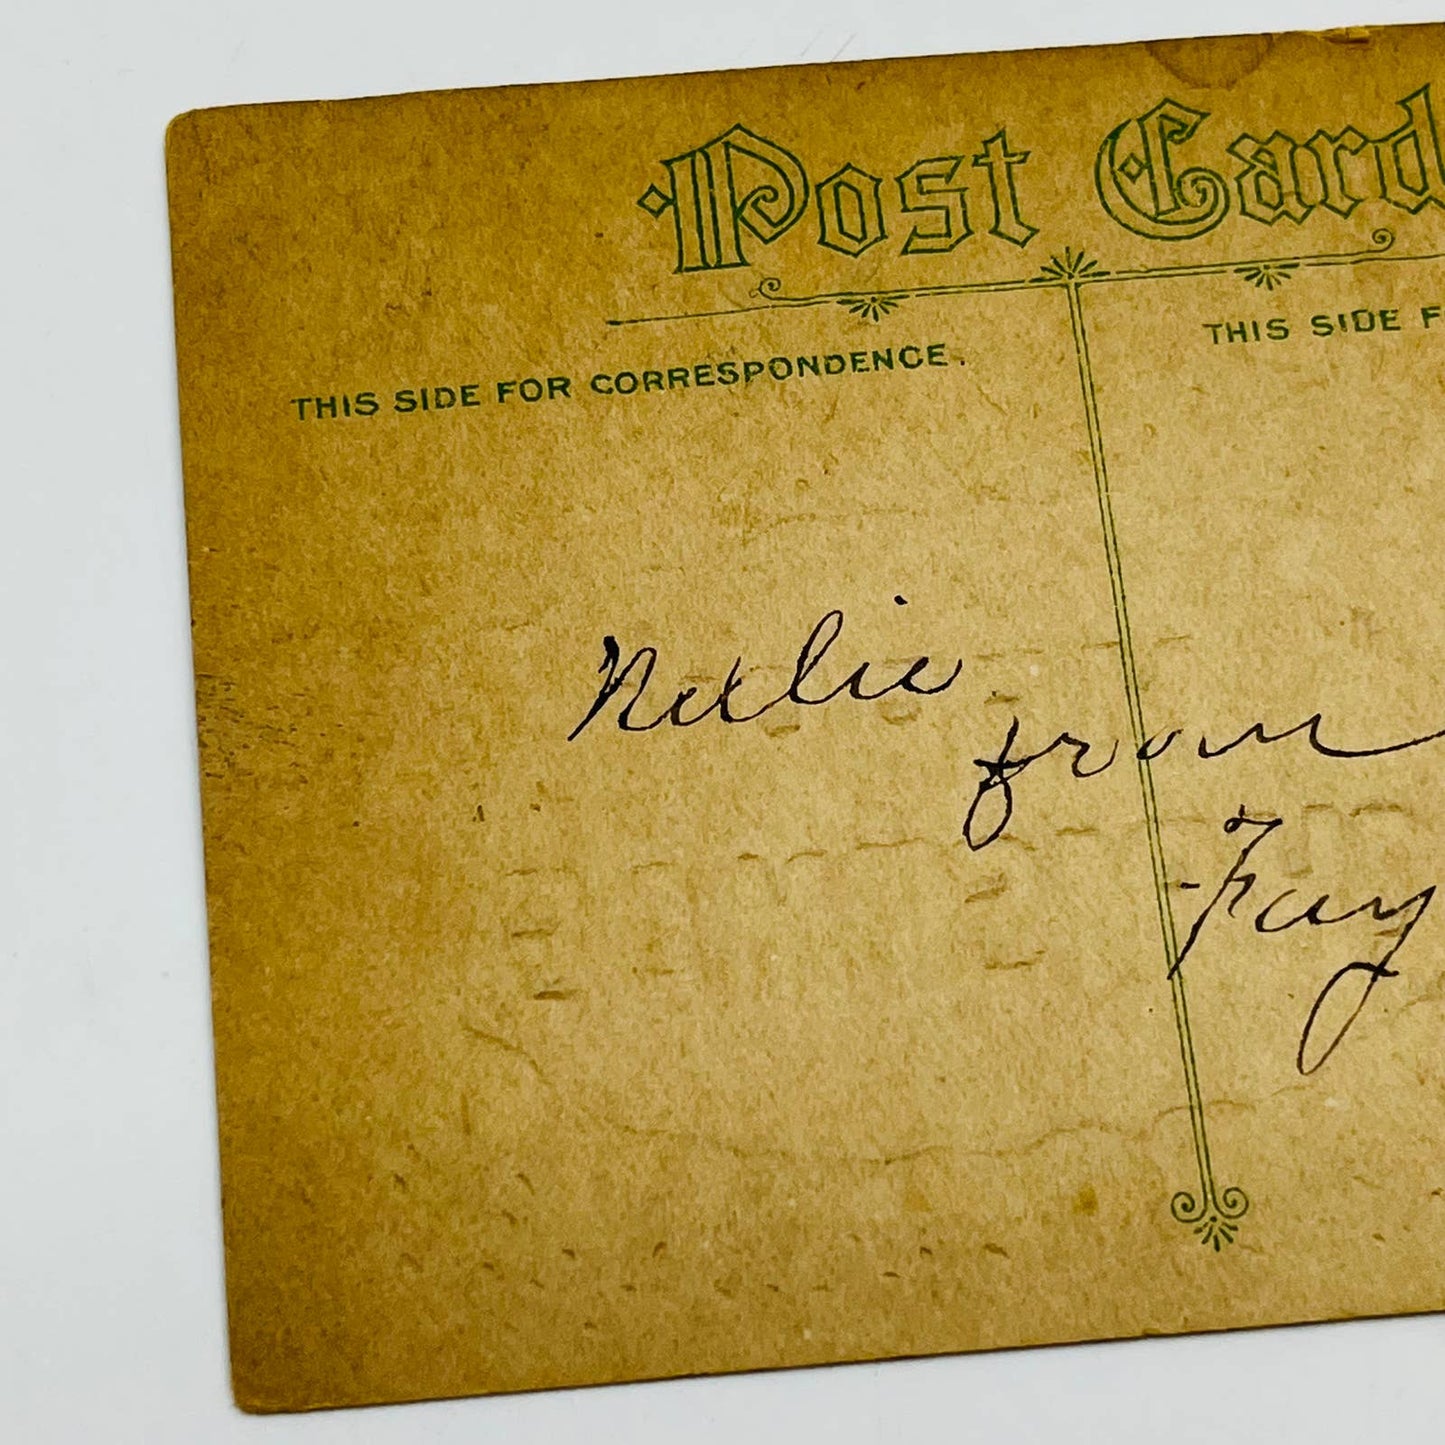 Post Card
THIS SIDE FOR CORRESPONDENCE.
THIS SIDE F
Nellie
from
Fay